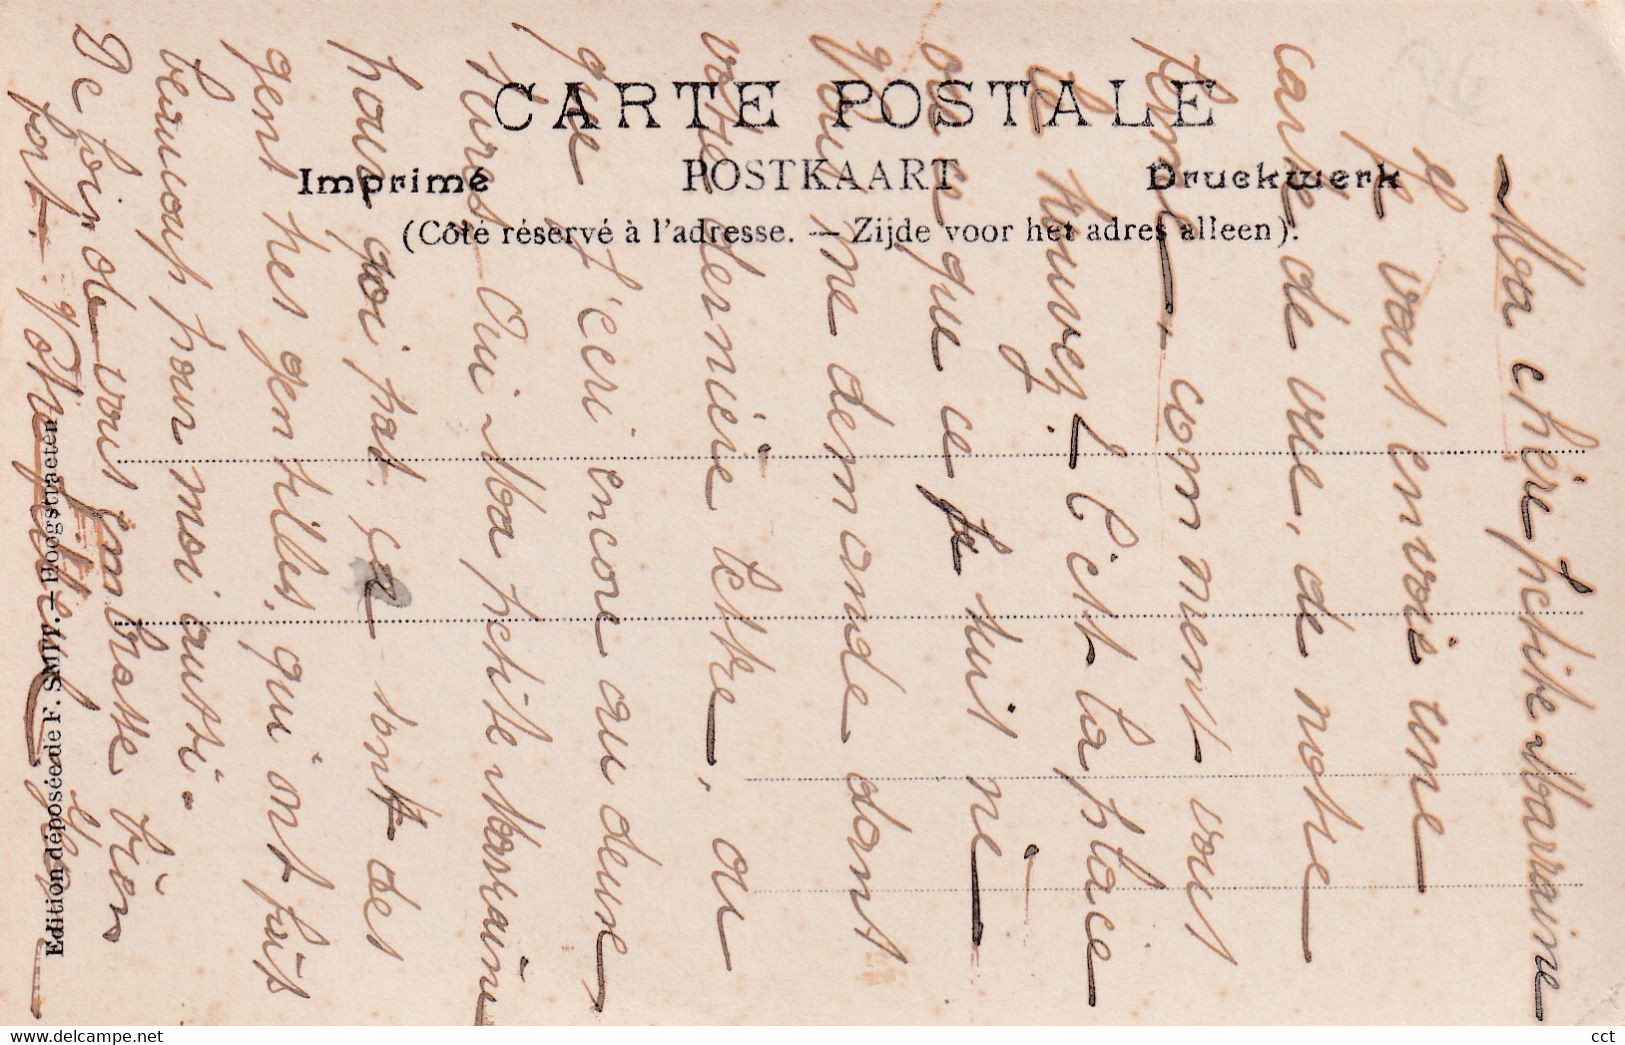 CARTE POSTALE
Imprimé POSTKAART Druckwerk
(Côté réservé à l'adresse. — Zijde voor het adres alleen).
Edition déposée de F. SMPP. — Hoogstraeten
Ma chère petite Marraine
Je vous envoie une
carte de vue, de notre
ferme comment vous
le trouvez. C'est la place
ou que ce tuit né
qu'on me demande dant
votre dernière lettre, ou
que j'ecri encore au deuse
Oui Ma petite Marraine
pat ça sont des
gent tres gentilles, qui ont fait
beaucoup pour moi aussi.
De loin de vous embrasse bien
fort.
cct